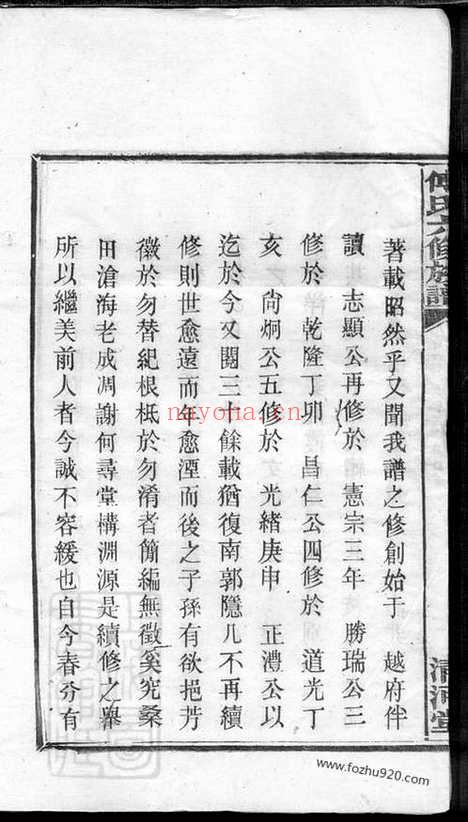 氏六修族譜
清河堂
著載昭然乎又聞我譜之修創始于 越府伴
讀 志顯公再修於憲宗三年 勝瑞公三
修於 乾隆丁卯 昌仁公四修於 道光丁
亥 尙炯公五修於 光緒庚申 正澧公以
迄於今又閱三十餘載猶復南郭隱几不再續
修則世愈遠而年愈湮而後之子孫有欲挹芳
徽於勿替紀根柢於勿淆者簡編無徵奚究桑
田滄海老成凋謝何尋堂構淵源是續修之舉
所以繼美前人者今誠不容緩也自今春分有
nayona.cn
www.fozhu920.com